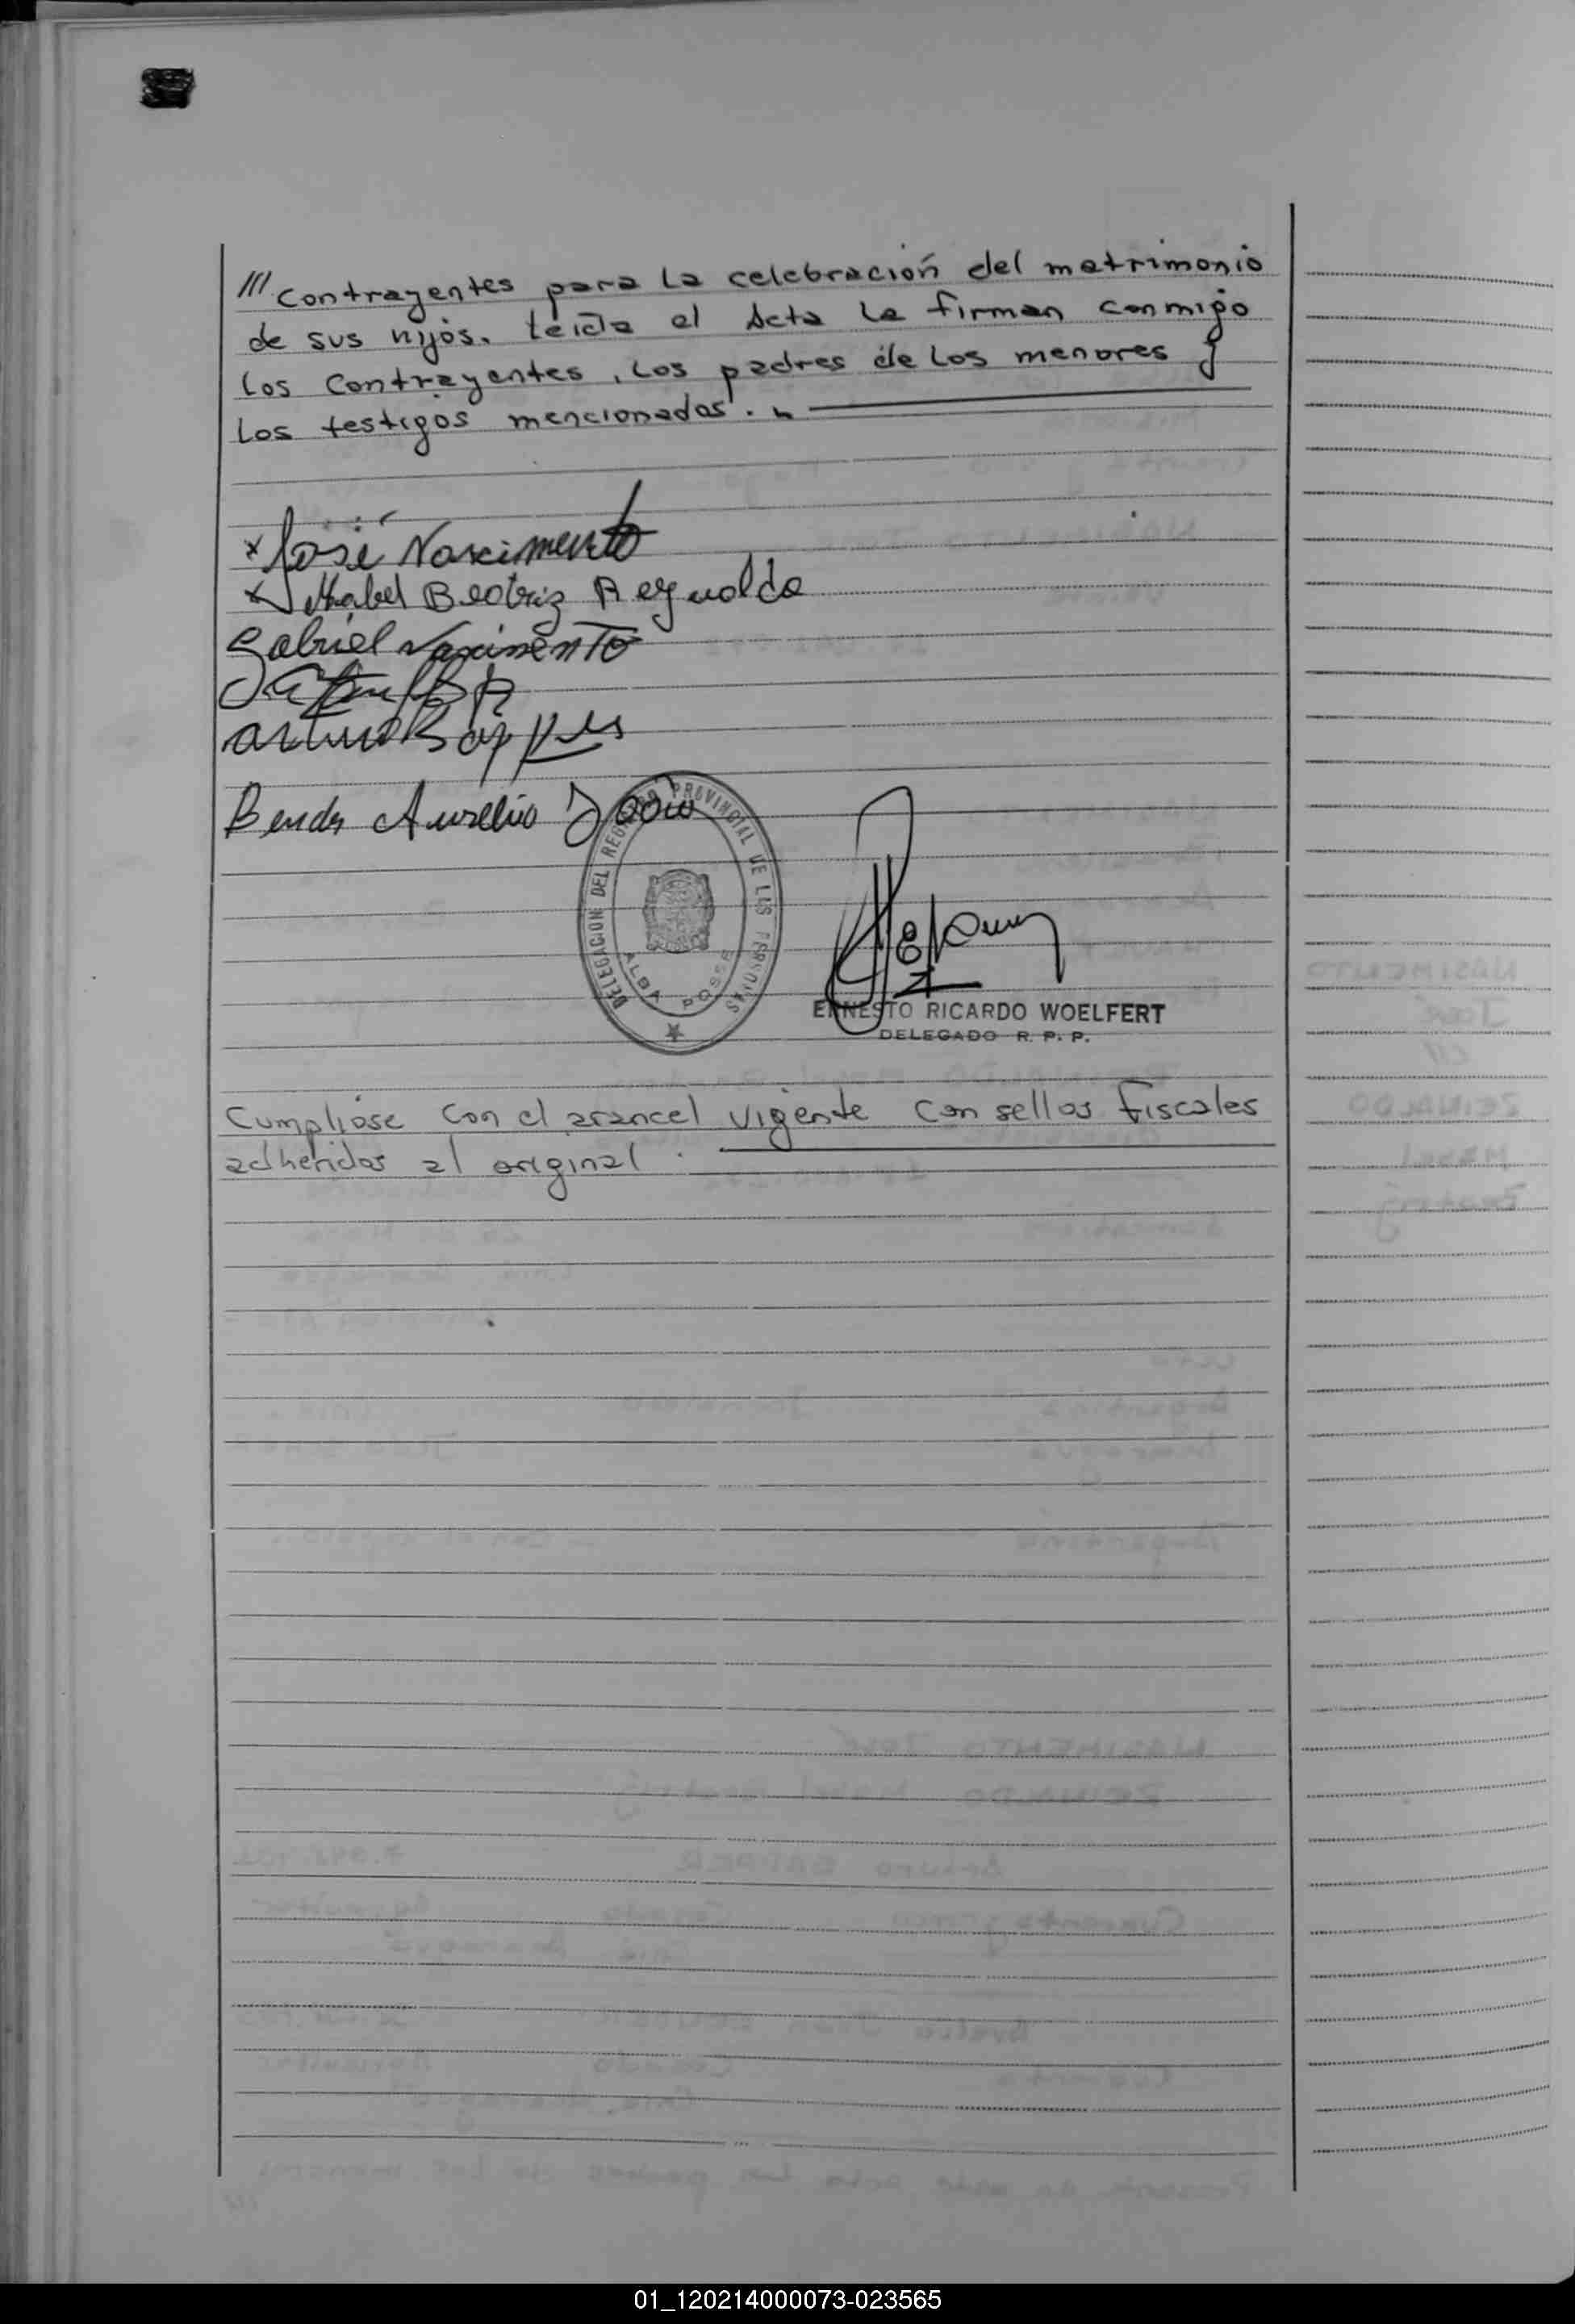 /// Contrayentes para la celebración del matrimonio
de sus hijos. Leída el Acta la firman conmigo
los contrayentes, los padres de los menores y
los testigos mencionados. 
x José Nascimento
x Mabel Beatriz Reynaldo
Gabriel Nascimento
Arturo
Aurelio
DELEGACION DEL REGISTRO PROVINCIAL DE LAS PERSONAS
ALBA POSSE
ERNESTO RICARDO WOELFERT
DELEGADO R. P. P.
Cumplióse con el arancel vigente con sellos fiscales
adheridos al original.
01_120214000073-023565